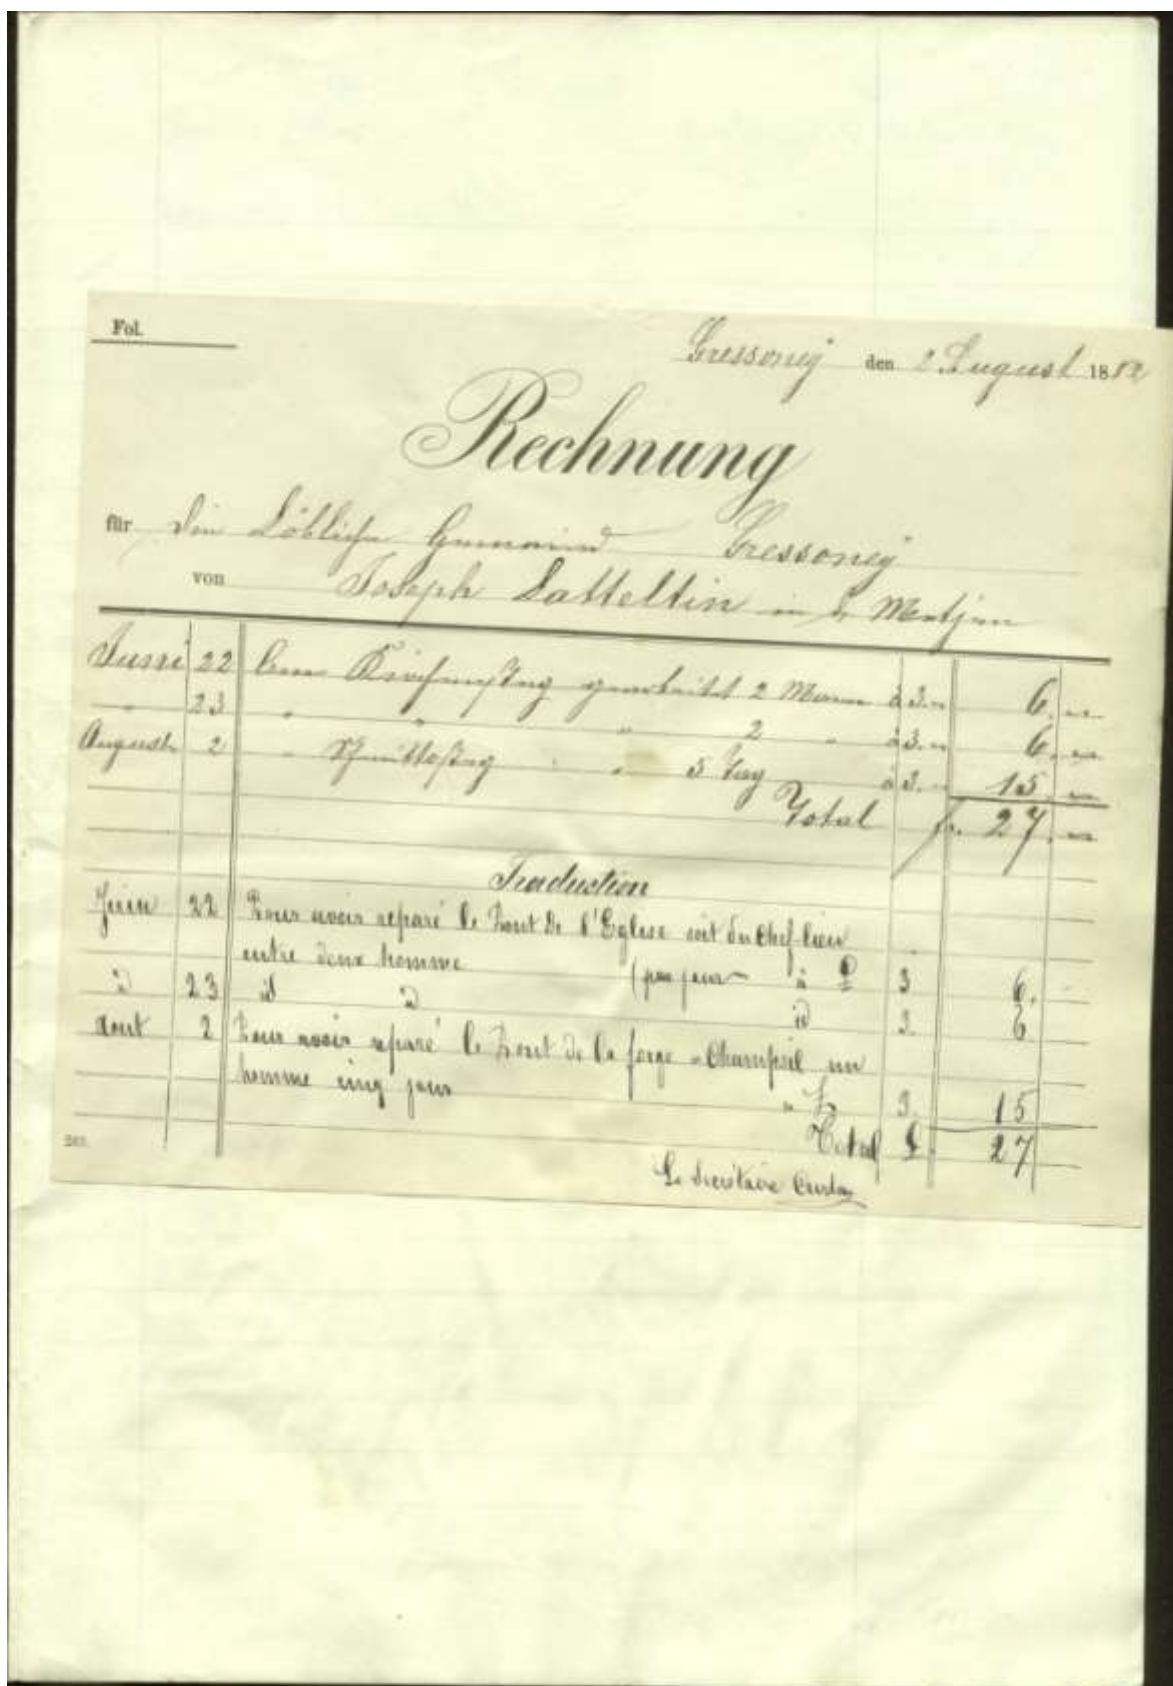 Fol.
Gressoney den 2 August 1882
Rechnung
für Die Löbliche Gemeind Gressoney
von Joseph Latteltin in Metjen
Juni 22 Am Kirchensteg gearbeitet 2 Mann à 3. — 6. —
" 23 " " " 2 " à 3. — 6. —
August 2 " " 5 Tag à 3. — 15 —
Total fr. 27. —
Traduction
Juin 22 Pour avoir reparé le Pont de l'Eglise soit du Chef-lieu
entre deux homme (par jour à £ 3 6. -
id 23 id id id 3. 6
Aout 2 Pour avoir reparé le Pont de la forge - Champsil un
homme cinq jours " £ 3. 15
Total £ 27
Le Secrétaire